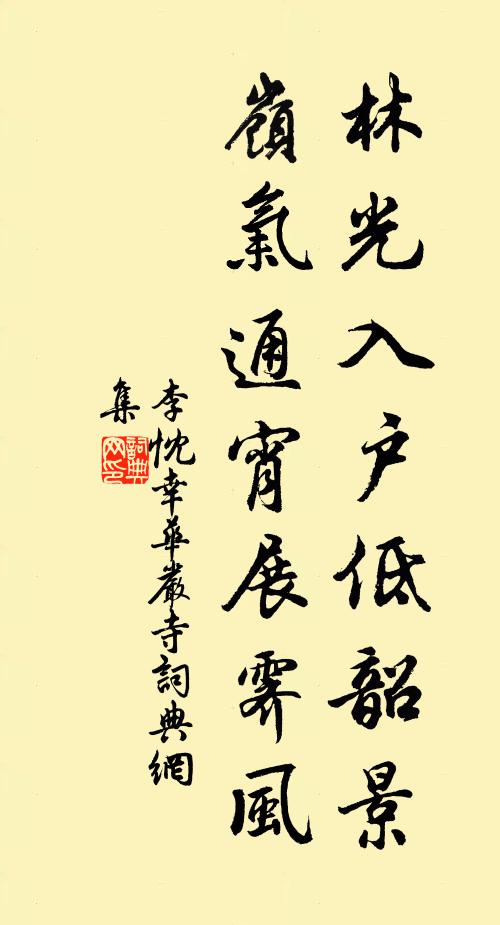 林光入户低韶景
嶺氣通宵展霽風
李忱幸華嚴寺詞典網
集
詞典
网印